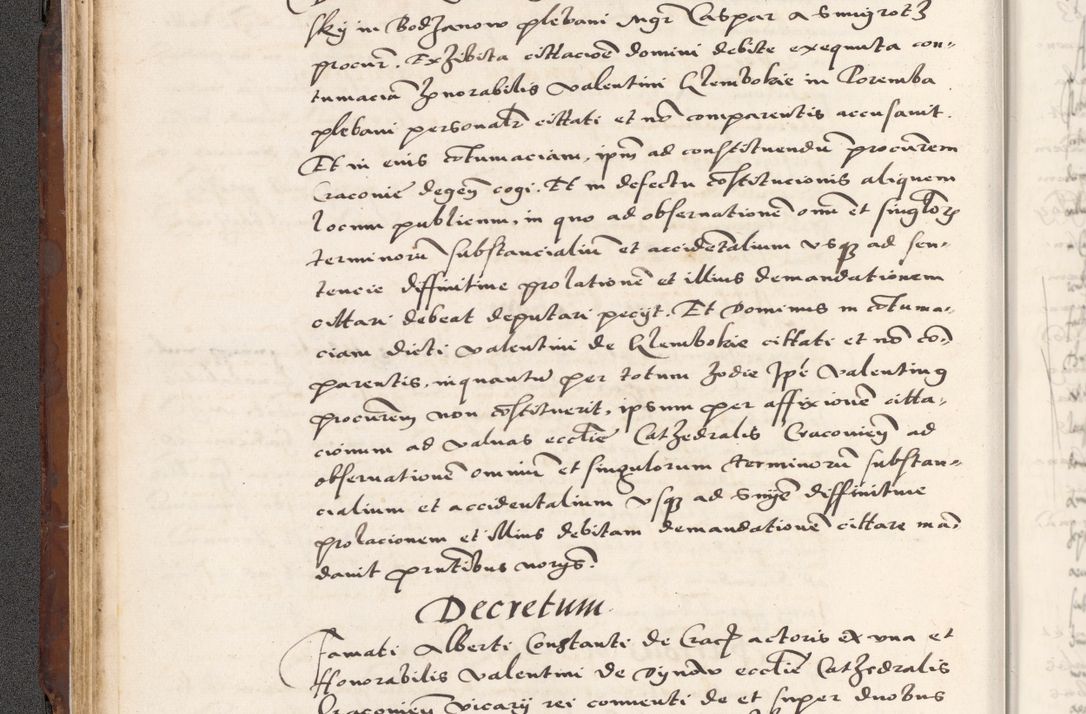 sky in Bodzanow plebani Mgr Caspar a Smigrotz
procur. Exhibita cittacioē domini debite exequuta con-
tumaciā honorabilis Valentini Klembokie in Poremba
plebani personalr cittati et nō comparentis accusavit.
Et in eius cōtumaciam, ipm ad constituendū procurem
Craconie degen̄ cogi. Et in defectu cōstitucionis aliquem
locum publicum, in quo ad observationē omī et singlor
terminorū substancialiū et accidētalium usq ad sen-
tencie diffinitive prolationē et illius demandationem
cittari debeat deputari peciit. Et Dominus in cōtuma-
ciam dicti Valentini de Klembokie cittati et nō cō-
parentis, inquantū per totum hodie Ipē Valentinus
procurem non cōstituerit, ipsum per affixionē citta-
cionum ad valvas ecclie Cathedralis Craconien̄ ad
observationē omniū et singulorum terminorū substan-
cialium et accidentalium usq ad Snie diffinitive
prolacionem et illius debitam demandationē cittare mā-
davit prntibus
Decretum
Famati Alberti Constanti de Crac actoris ex una et
Honorabilis Valentini de Dynow ecclie Cathedralis
Craconien̄ vicarii rei conventi de et super duobus